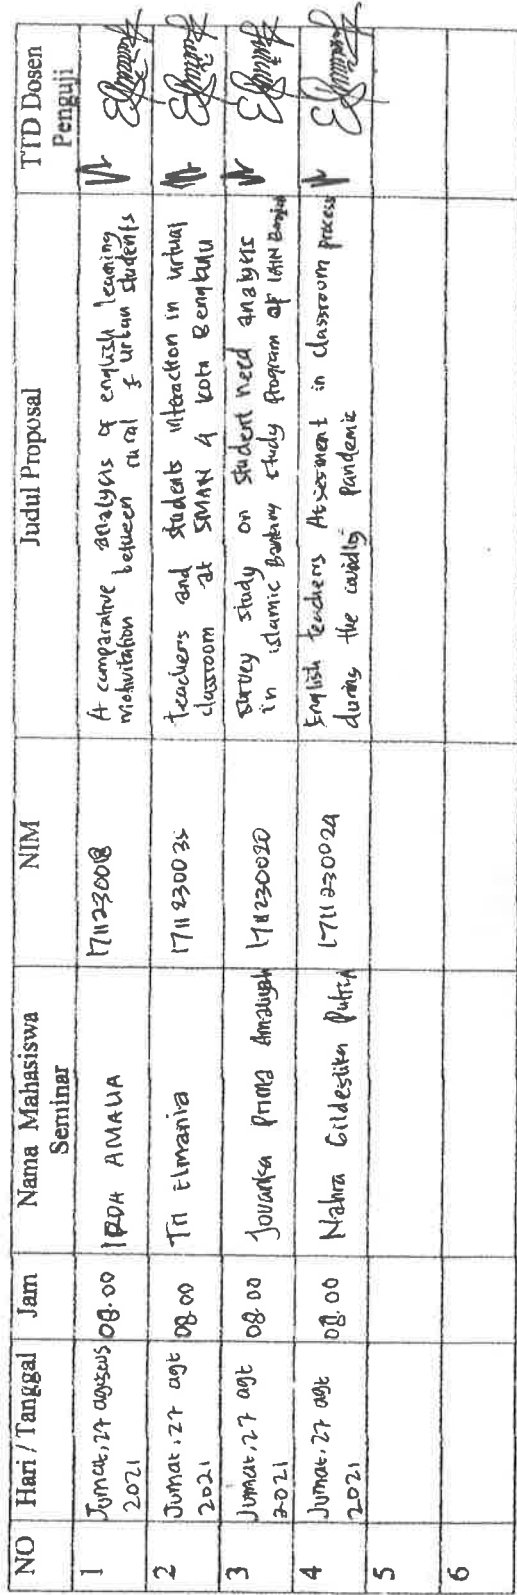 NO Hari / Tanggal Jam Nama Mahasiswa Seminar NIM Judul Proposal TTD Dosen Penguji
1 Jumat, 27 agustus 2021 08.00 IRDA AMALIA 1711230018 A comparative analysis of english learning
motivitation between rural & urban students
2 Jumat, 27 agt 2021 08.00 Tri Elmanira 1711230035 teachers and students interaction in virtual
classroom at SMAN 4 kota Bengkulu
3 Jumat, 27 agt 2021 08.00 Jovanka Prima Amaliyah 1711230020 survey study on student need analysis
in islamic Banking study program of IAIN
4 Jumat, 27 agt 2021 08.00 Nahra Gildestika Putria 1711230029 English teachers Assesment in classroom process
during the pandemic
5
6